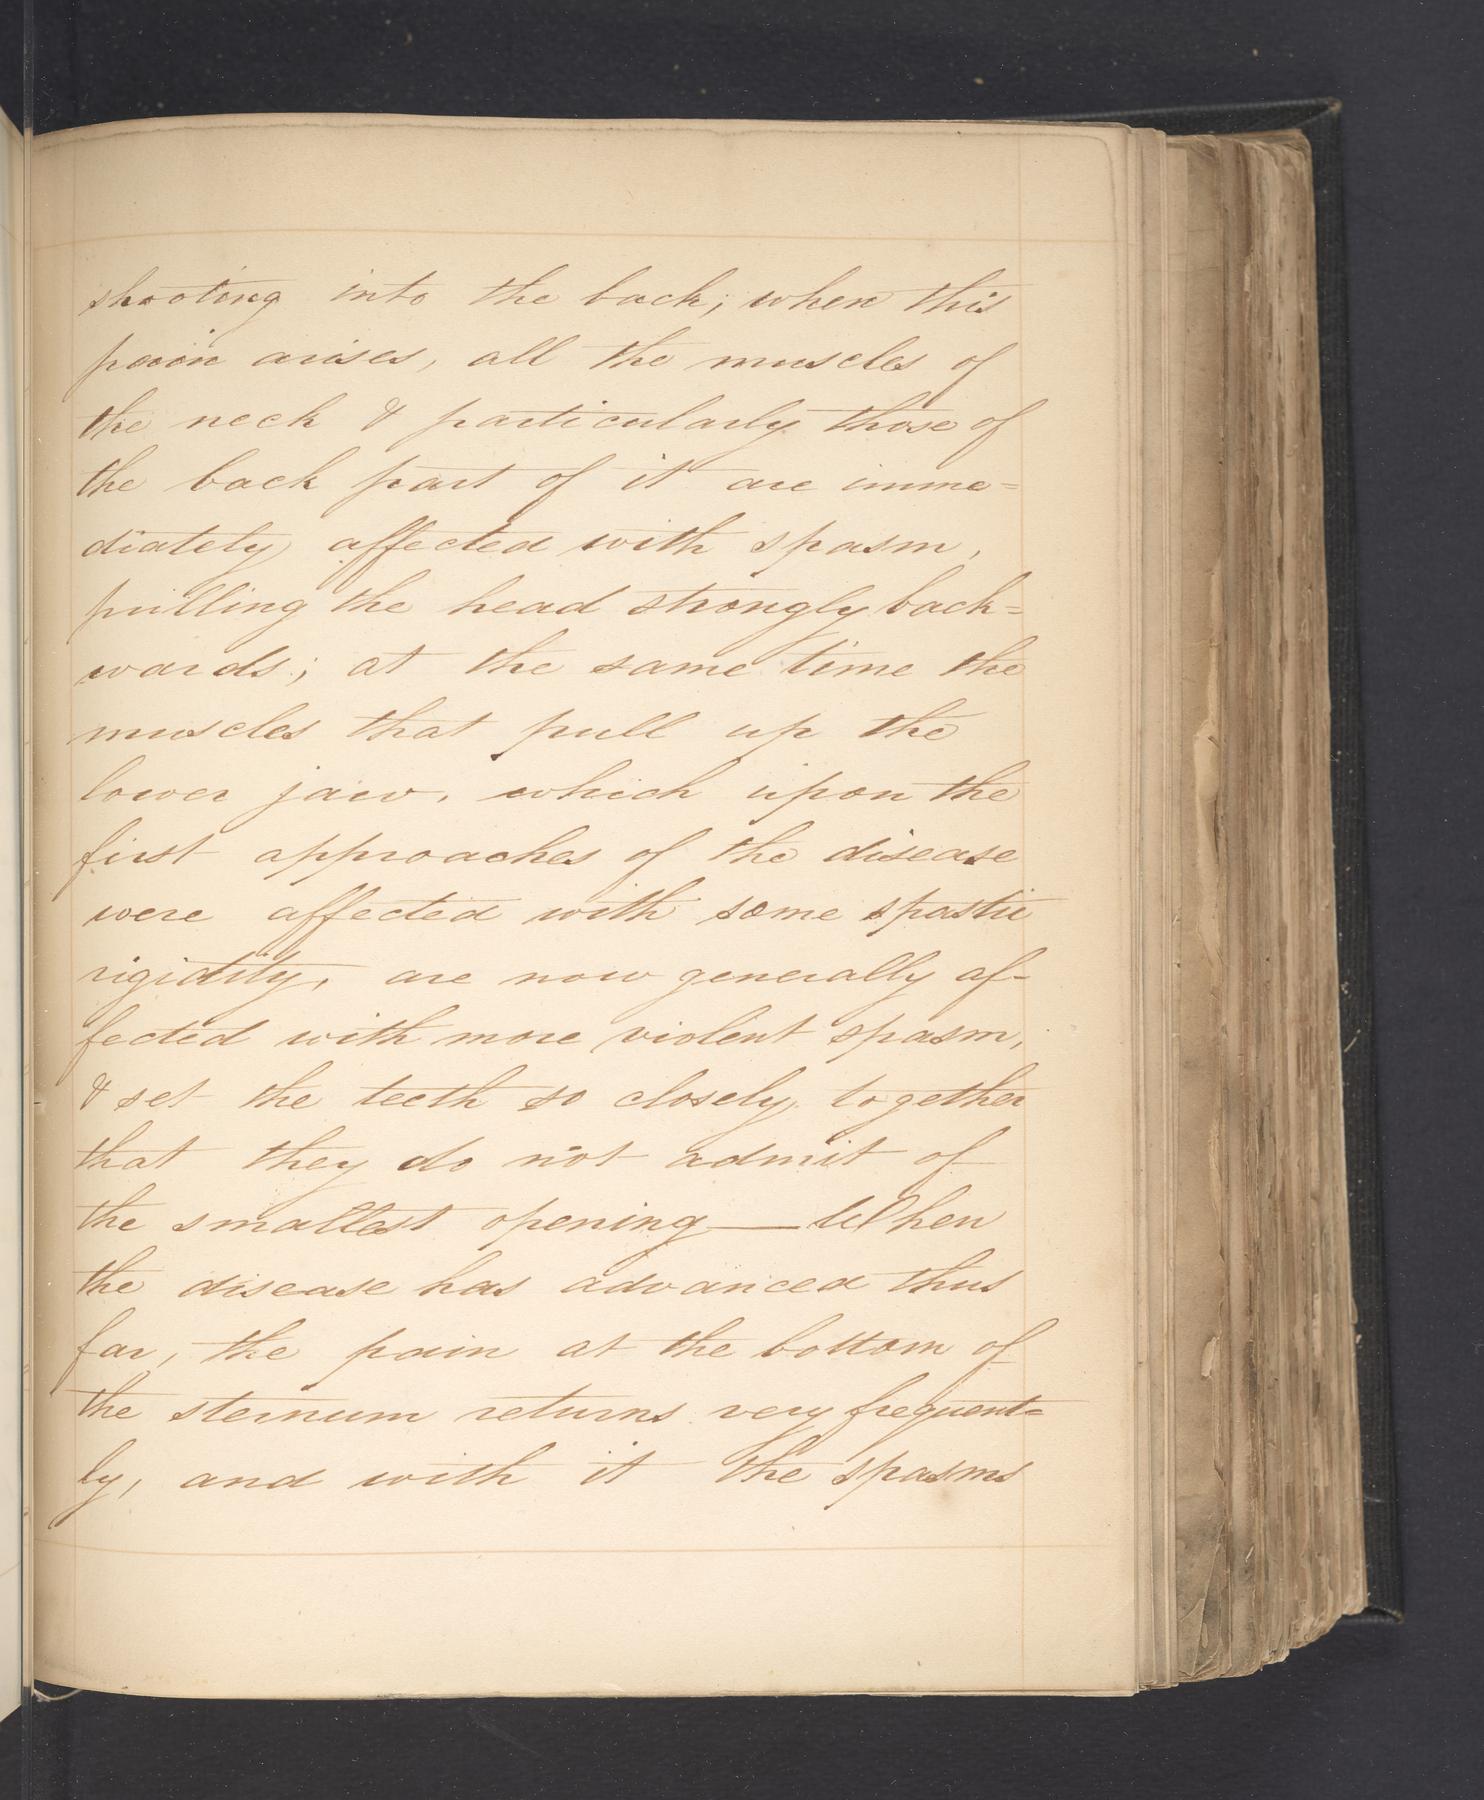 shooting into the back; when this
pain arises, all the muscles of
the neck & particularly those of
the back part of it are imme=
diately affected with spasm,
pulling the head strongly back=
wards; at the same time the
muscles that pull up the
lower jaw, which upon the
first approaches of the disease
were affected with some spastic
rigidity, are now generally af-
fected with more violent spasm,
& set the teeth so closely together
that they do not admit of
the smallest opening — When
the disease has advanced thus
far, the pain at the bottom of
the sternum returns very frequent=
ly, and with it the spasms